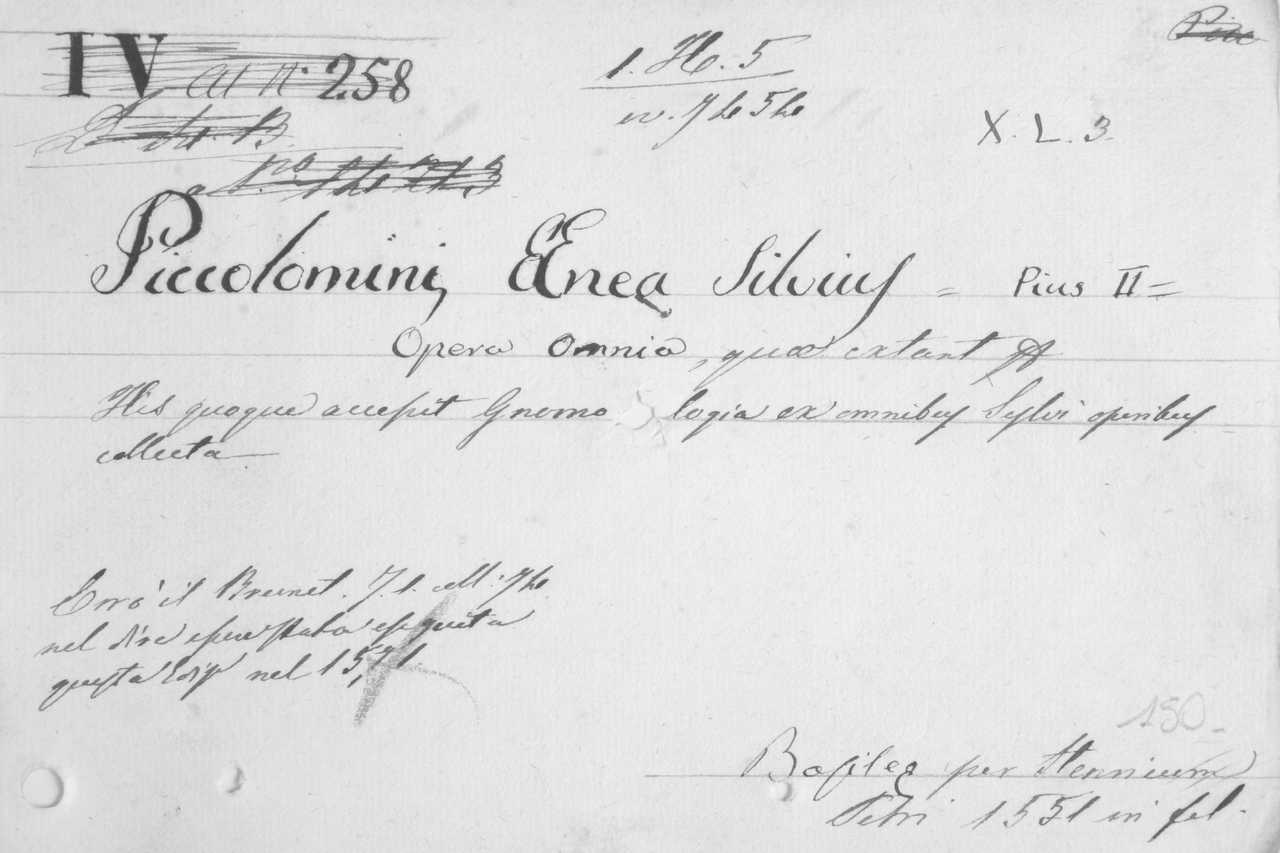 Picc
IV al n. 258
1. H. 5
X. L. 3
Piccolomini, Æneę Silvius = Pius II =
Opera omnia, quæ extant
His quoque accepit Gnomologia ex omnibus Sylvi operibus
collecta
Errò il Brunet. T. 1. coll:
nel dire esser stata eseguita
questa Ediz nel 1571
150_
Basileę per Hennicum
Petri 1551 in fol.